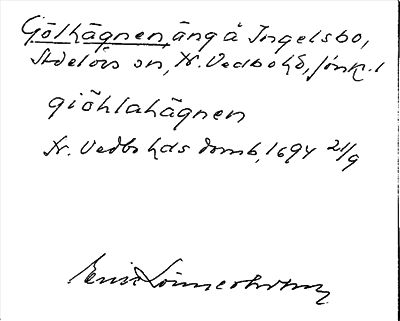 Gölhägnen, äng å Ingelsbo,
Adelövs sn, N. Vedbo hd, Jönk. l
giöhlahägnen
N. Vedbo hds domb, 1694 21/9